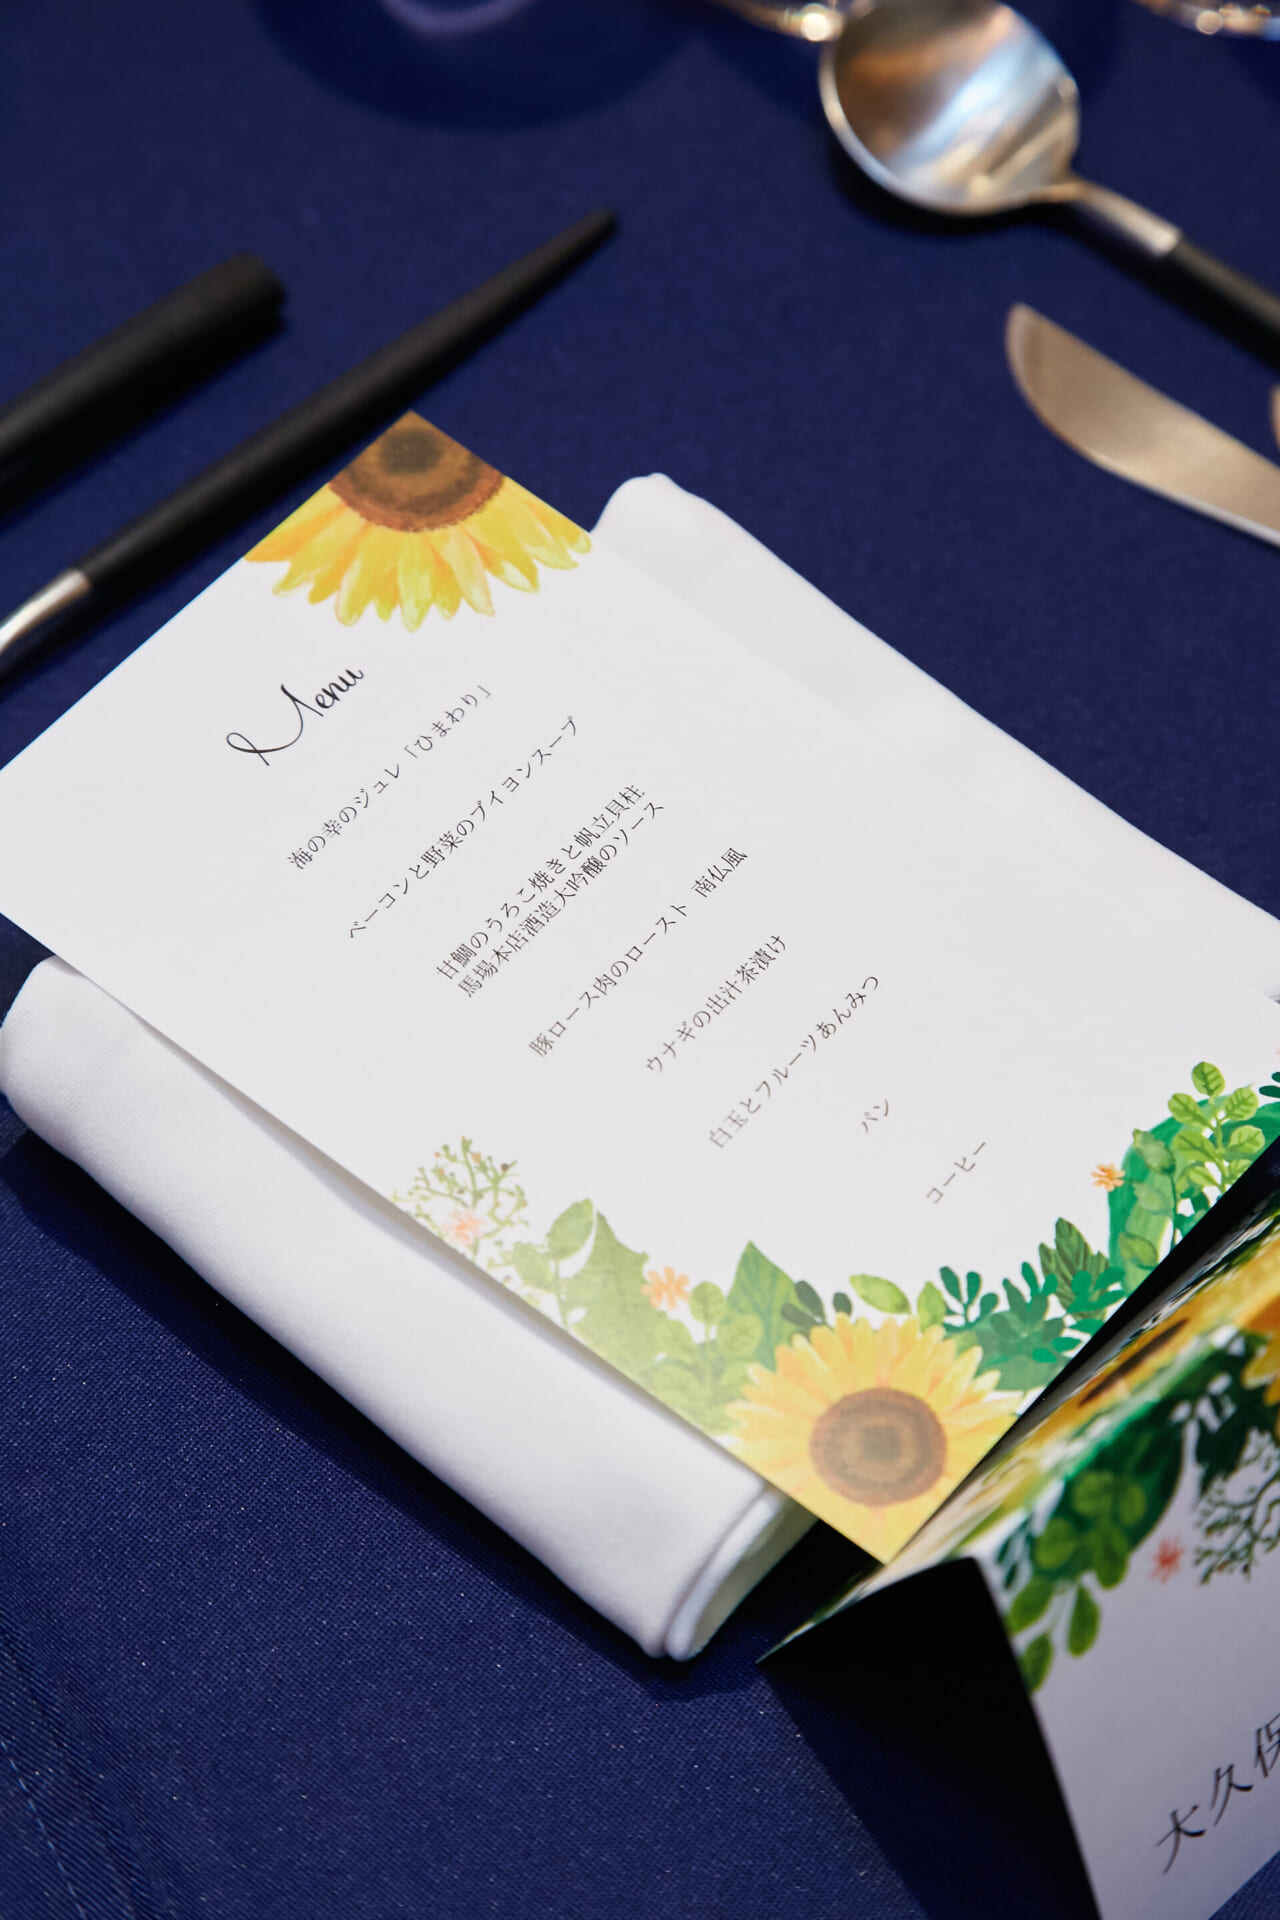 Menu
海の幸のジュレ「ひまわり」
ベーコンと野菜のブイヨンスープ
甘鯛のうろこ焼きと帆立貝柱
馬場本店酒造大吟醸のソース
豚ロース肉のロースト 南仏風
ウナギの出汁茶漬け
白玉とフルーツあんみつ
パン
コーヒー
大久保